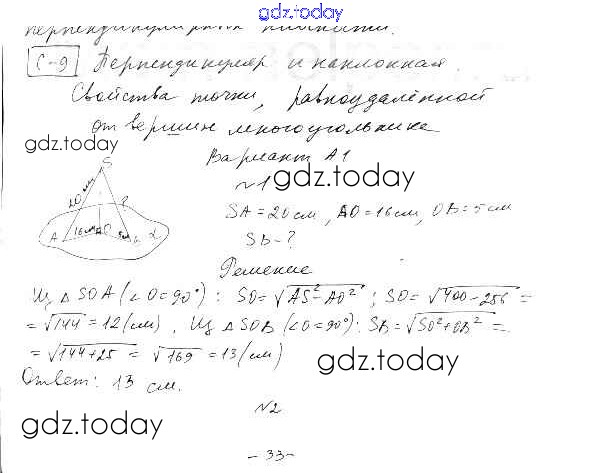 gdz.today
перпендикулярна плоскости.
С-9 Перпендикуляр и наклонная.
Свойства точки, равноудалённой
от вершин многоугольника
gdz.today
Вариант А1
№1 gdz.today
S
20 см
?
A 16см O 5см B α
SA = 20 см, AO = 16 см, OB = 5 см
SB - ?
Решение
Из △ SOA (∠O = 90°): SO = √AS² - AO²; SO = √400 - 256 =
= √144 = 12 (см), Из △ SOB (∠O = 90°): SB = √SO² + OB² =
= √144 + 25 = √169 = 13 (см)
gdz.today
Ответ: 13 см.
№2
gdz.today
gdz.today
- 33 -